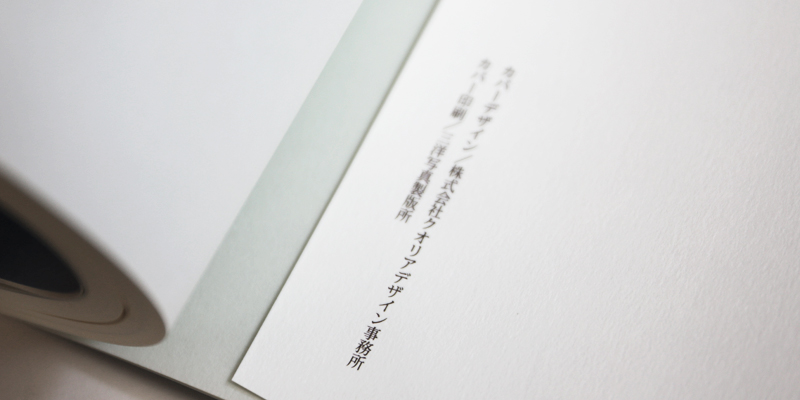 カバーデザイン／株式会社クオリアデザイン事務所
カバー印刷／三洋写真製版所